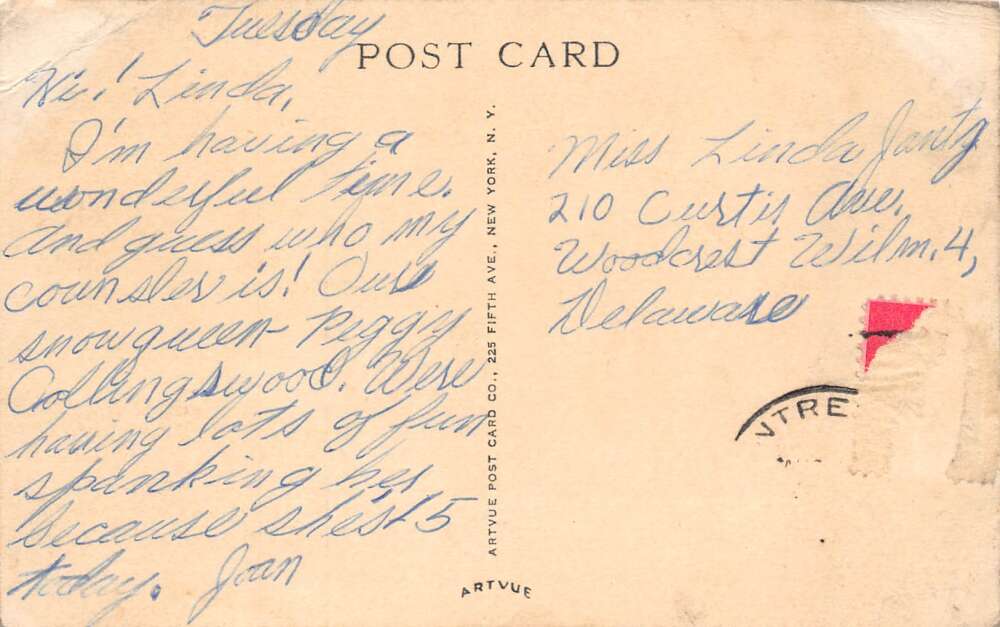 Tuesday
POST CARD
Hi! Linda,
I'm having a
wonderful time.
And guess who my
counsler is! Our
snowqueen - Peggy
Collingswood. Were
having lots of fun
spanking her
because she's 15
today. Joan
ARTVUE POST CARD CO., 225 FIFTH AVE., NEW YORK, N. Y.
ARTVUE
Miss Linda Jantz
210 Curtis Ave.
Woodcrest Wilm. 4,
Delaware
NTRE